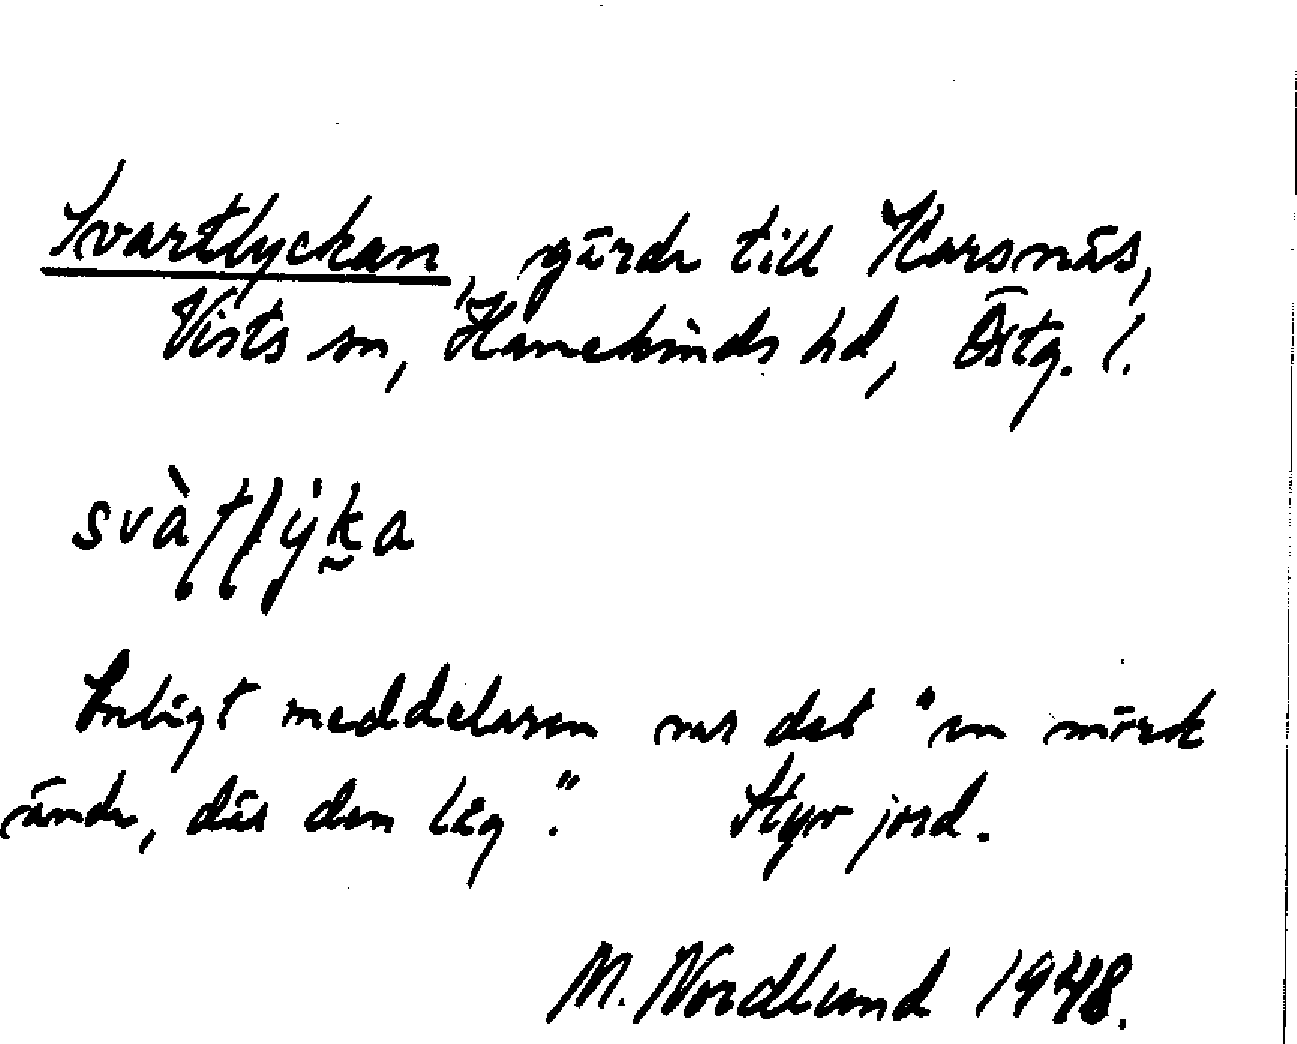 Svartlyckan, gärde till Karsnäs,
Vists sn, Hanekinds hd, Östg. l.
Enligt meddelaren var det "en mörk
ände, där den låg". Styv jord.
M. Nordlund 1948.